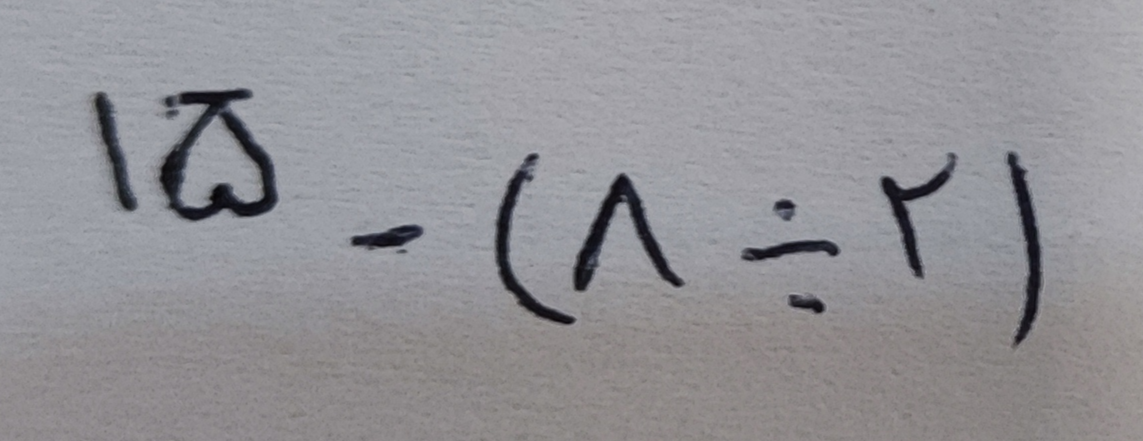 ۱۵ - (۸ ÷ ۲)